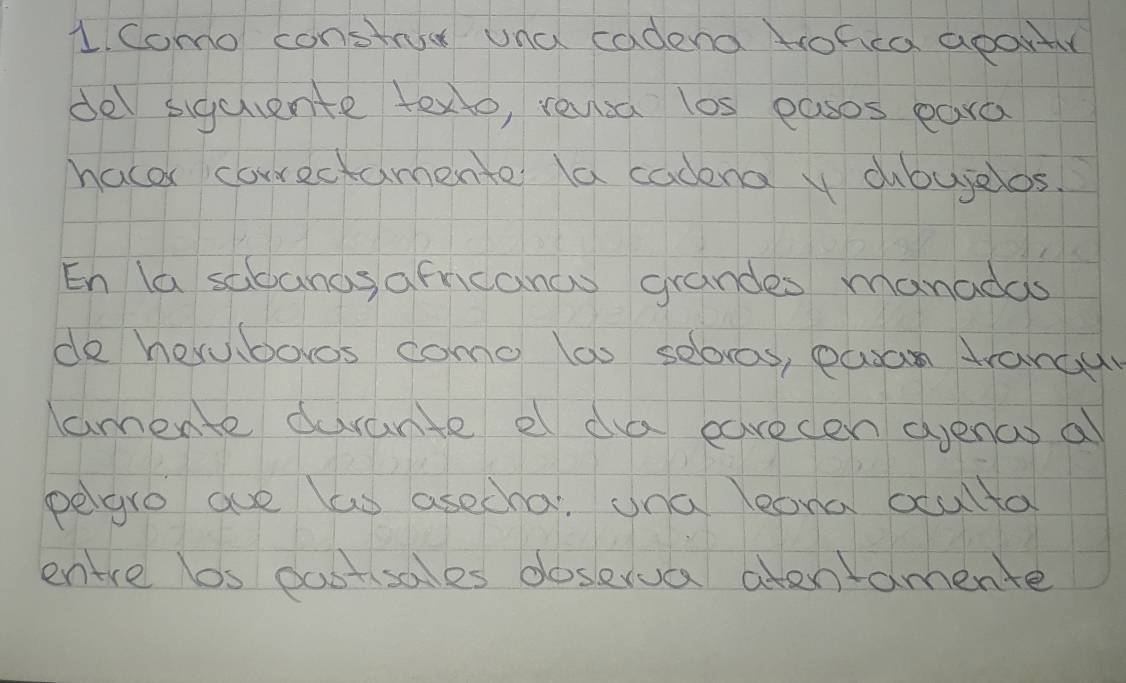 1. Como construir una cadena trofica apartir
del siguiente texto, revisa los pasos para
hacer correctamente la cadena y dibujelos.
En la sabanas, africanas grandes manadas
de heruiboros como las sebras, pasan tranqui
lamente durante el dia parecen ajenas al
peligro que las asecha: una leona oculta
entre los pastisales observa atentamente